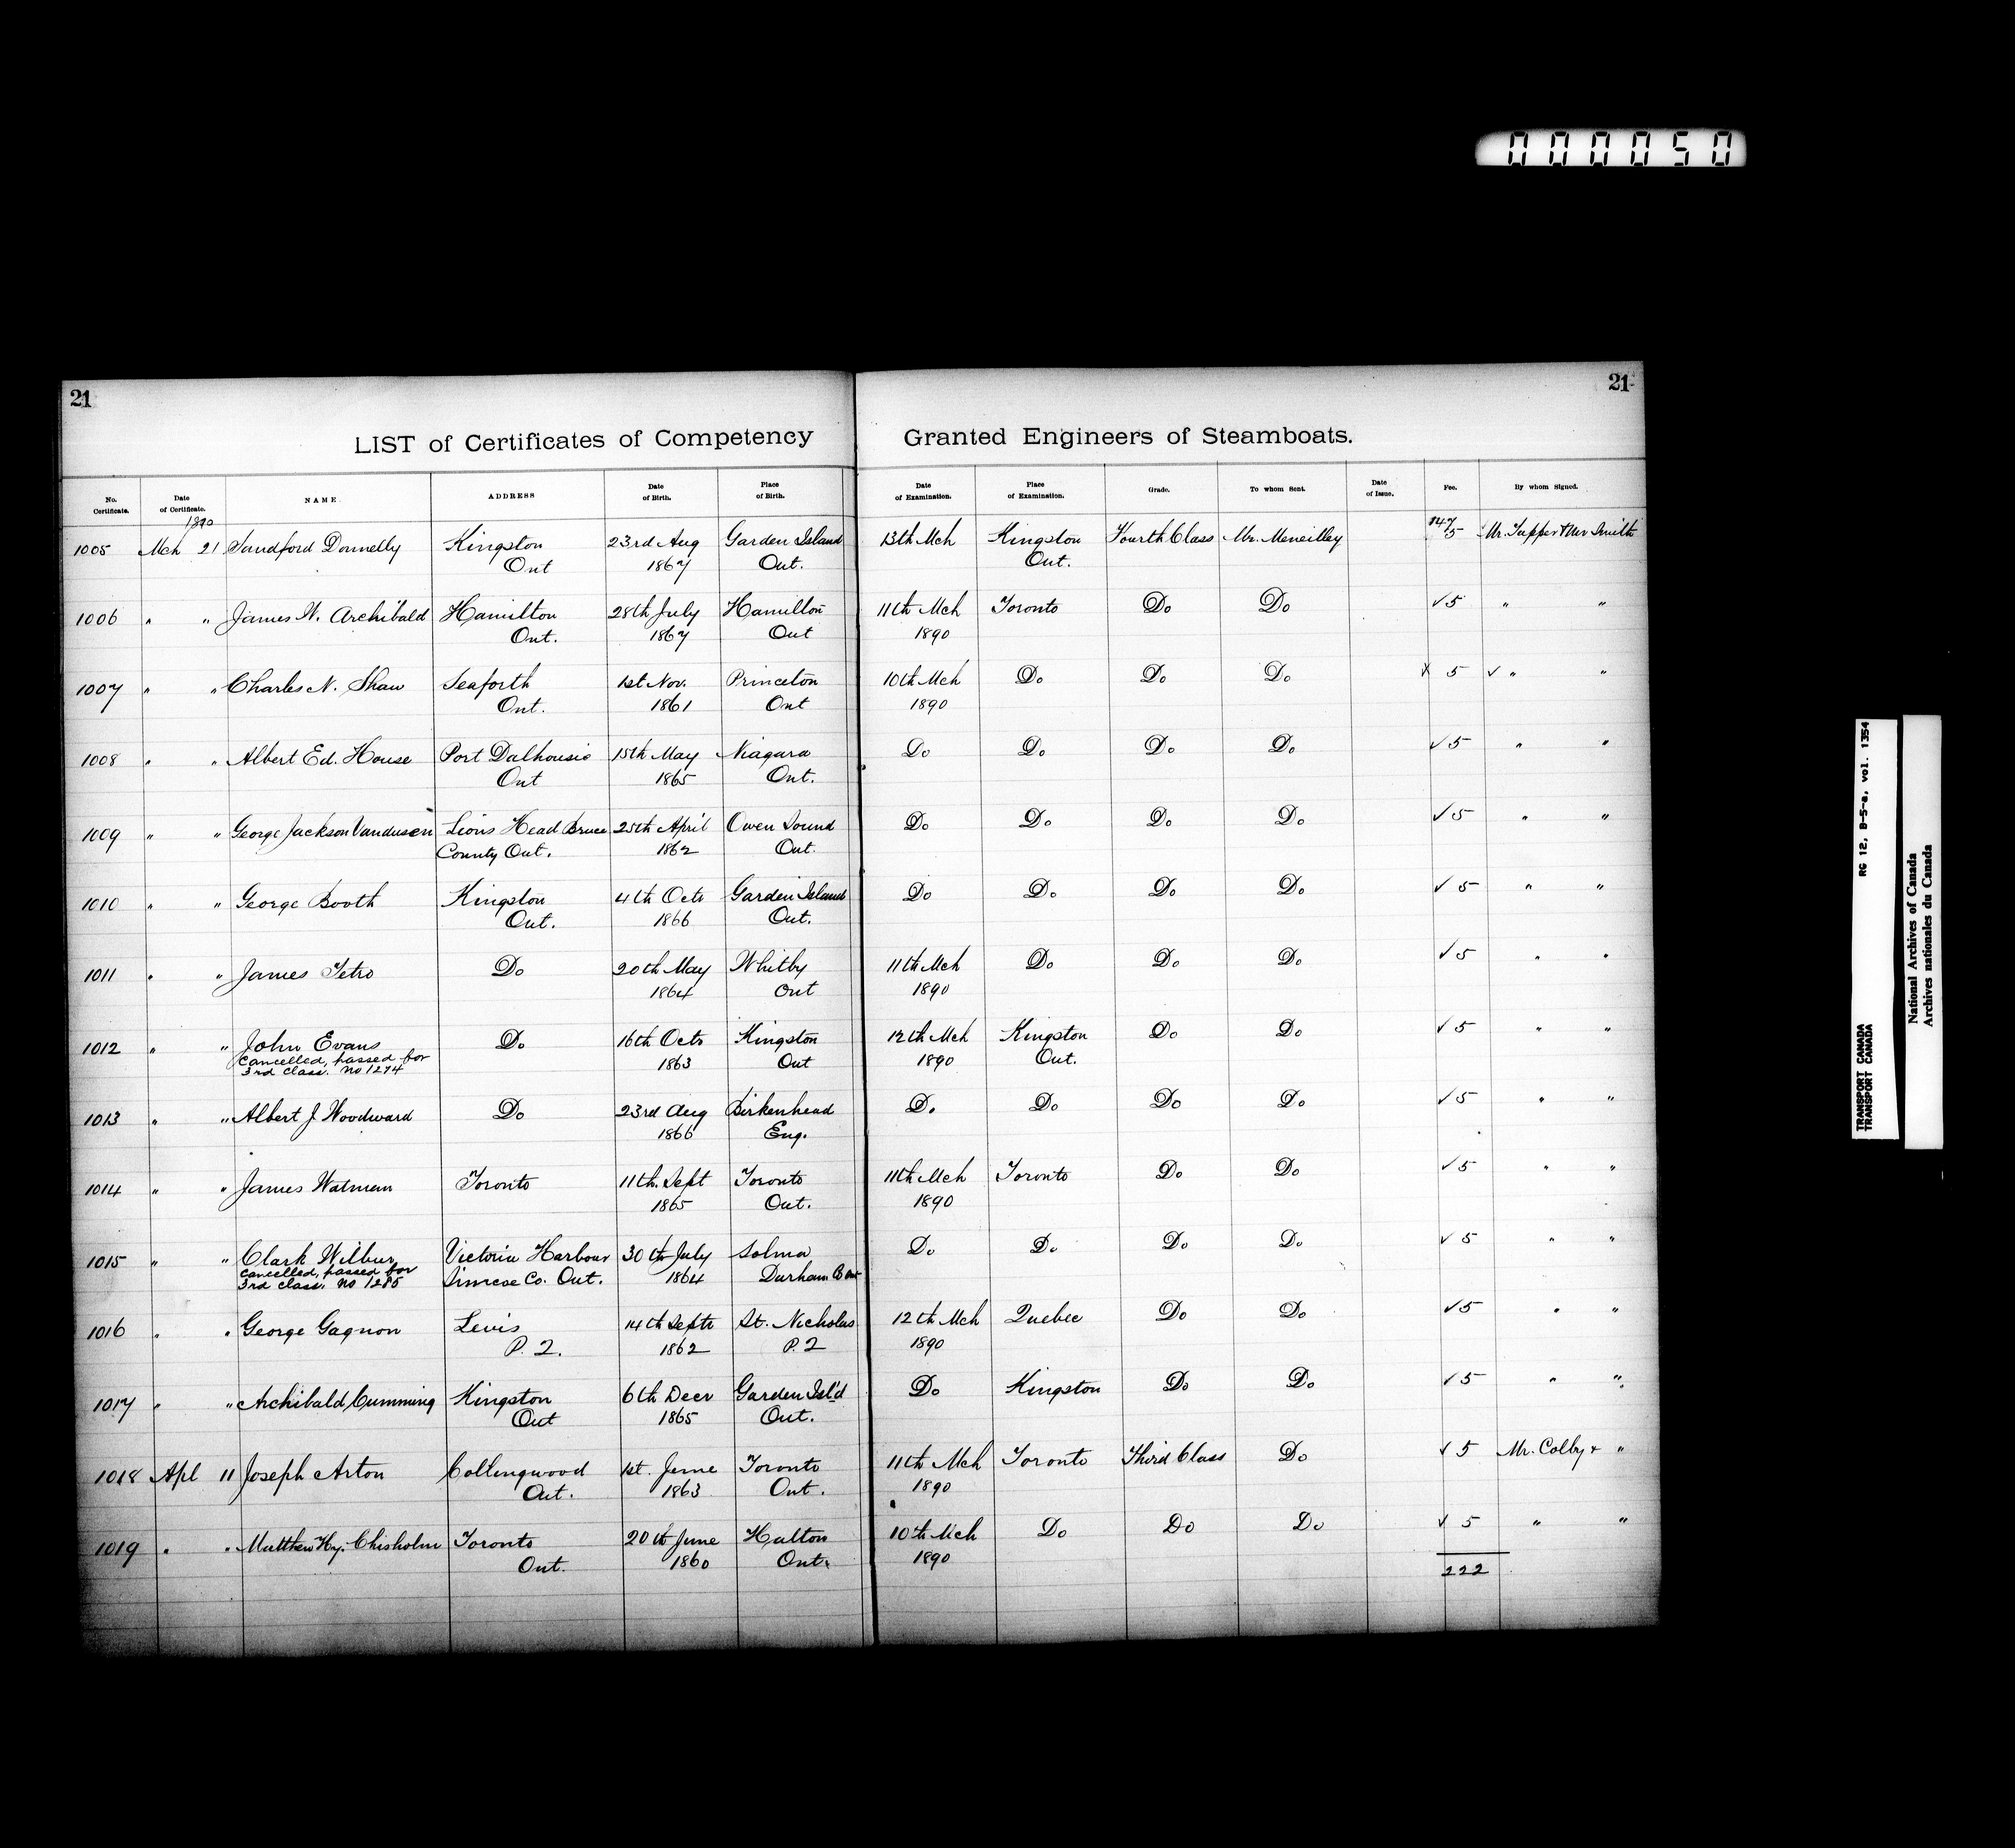 000050
21
21
LIST of Certificates of Competency Granted Engineers of Steamboats.
No. Certificate. Date of Certificate. NAME. ADDRESS Date of Birth. Place of Birth. Date of Examination. Place of Examination. Grade. To whom Sent. Date of Issue. Fee. By whom Signed.
1890
147
1005 Mch 21 Sandford Donnelly Kingston 23rd Aug Garden Island 13th Mch Kingston Fourth Class Mr. Meneilley 5 Mr. Tupper & Mr Smith
Ont 1867 Ont. Ont.
1006 " " James W. Archibald Hamilton 28th July Hamilton 11th Mch Toronto Do Do ✓ 5 " "
Ont. 1867 Ont 1890
1007 " " Charles N. Shaw Seaforth 1st Nov. Princeton 10th Mch Do Do Do X 5 ✓ " "
Ont. 1861 Ont 1890
1008 " " Albert Ed. House Port Dalhousie 15th May Niagara Do Do Do Do ✓ 5 " "
Ont 1865 Ont.
1009 " " George Jackson Vandusen Lions Head Bruce 25th April Owen Sound Do Do Do Do ✓ 5 " "
County Ont. 1862 Ont.
1010 " " George Booth Kingston 4th Octr Garden Island Do Do Do Do ✓ 5 " "
Ont. 1866 Ont.
1011 " " James Tetro Do 20th May Whitby 11th Mch Do Do Do ✓ 5 " "
1864 Ont 1890
1012 " " John Evans Do 16th Octr Kingston 12th Mch Kingston Do Do ✓ 5 " "
cancelled, passed for 1863 Ont 1890 Ont.
3rd class. No 1274
1013 " " Albert J. Woodward Do 23rd Aug Birkenhead Do Do Do Do ✓ 5 " "
1866 Eng.
1014 " " James Watman Toronto 11th Sept Toronto 11th Mch Toronto Do Do ✓ 5 " "
1865 Ont. 1890
1015 " " Clark Wilbur Victoria Harbour 30th July Solma Do Do Do Do ✓ 5 " "
cancelled, passed for Simcoe Co. Ont. 1864 Durham Co Ont
3rd class. No 1285
1016 " " George Gagnon Levis 14th Septr St. Nicholas 12th Mch Quebec Do Do ✓ 5 " "
P.Q. 1862 P.Q 1890
1017 " " Archibald Cumming Kingston 6th Decr Garden Isl'd Do Kingston Do Do ✓ 5 " "
Ont 1865 Ont.
1018 Apl 11 Joseph Arton Collingwood 1st. June Toronto 11th Mch Toronto Third Class Do ✓ 5 Mr. Colby & "
Ont. 1863 Ont. 1890
1019 " " Matthew Hy. Chisholm Toronto 20th June Halton 10th Mch Do Do Do ✓ 5 " "
Ont. 1860 Ont. 1890
222
RG 12, B-5-a, vol. 1354
TRANSPORT CANADA
TRANSPORT CANADA
National Archives of Canada
Archives nationales du Canada